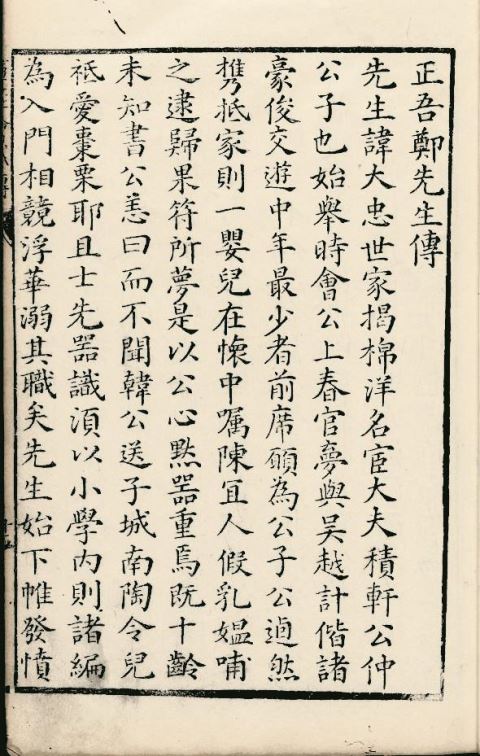 正吾鄭先生傳
先生諱大忠世家揭棉洋名宦大夫積軒公仲
公子也始舉時會公上春官夢與吳越計偕諸
豪俊交遊中年最少者前席願為公子公逌然
攜抵家則一嬰兒在懷中嘱陳宜人假乳媪哺
之逮歸果符所夢是以公心黙器重焉既十齡
未知書公恚曰而不聞韓公送子城南陶令兒
祗愛棗栗耶且士先器識湏以小學內則諸編
為入門相競浮華溺其職矣先生始下帷發憤